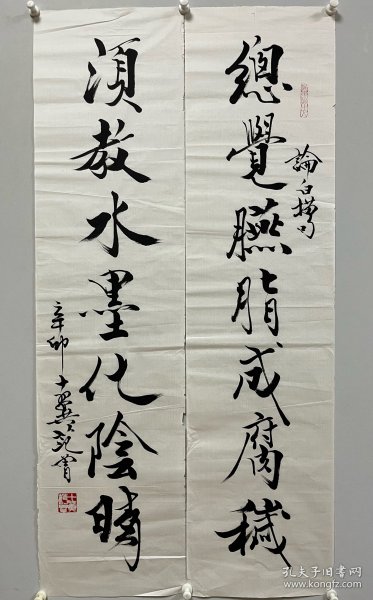 總覺臙脂成腐穢
論白描句
須教水墨化陰晴
辛卯 十翼范曾
孔夫子旧书网